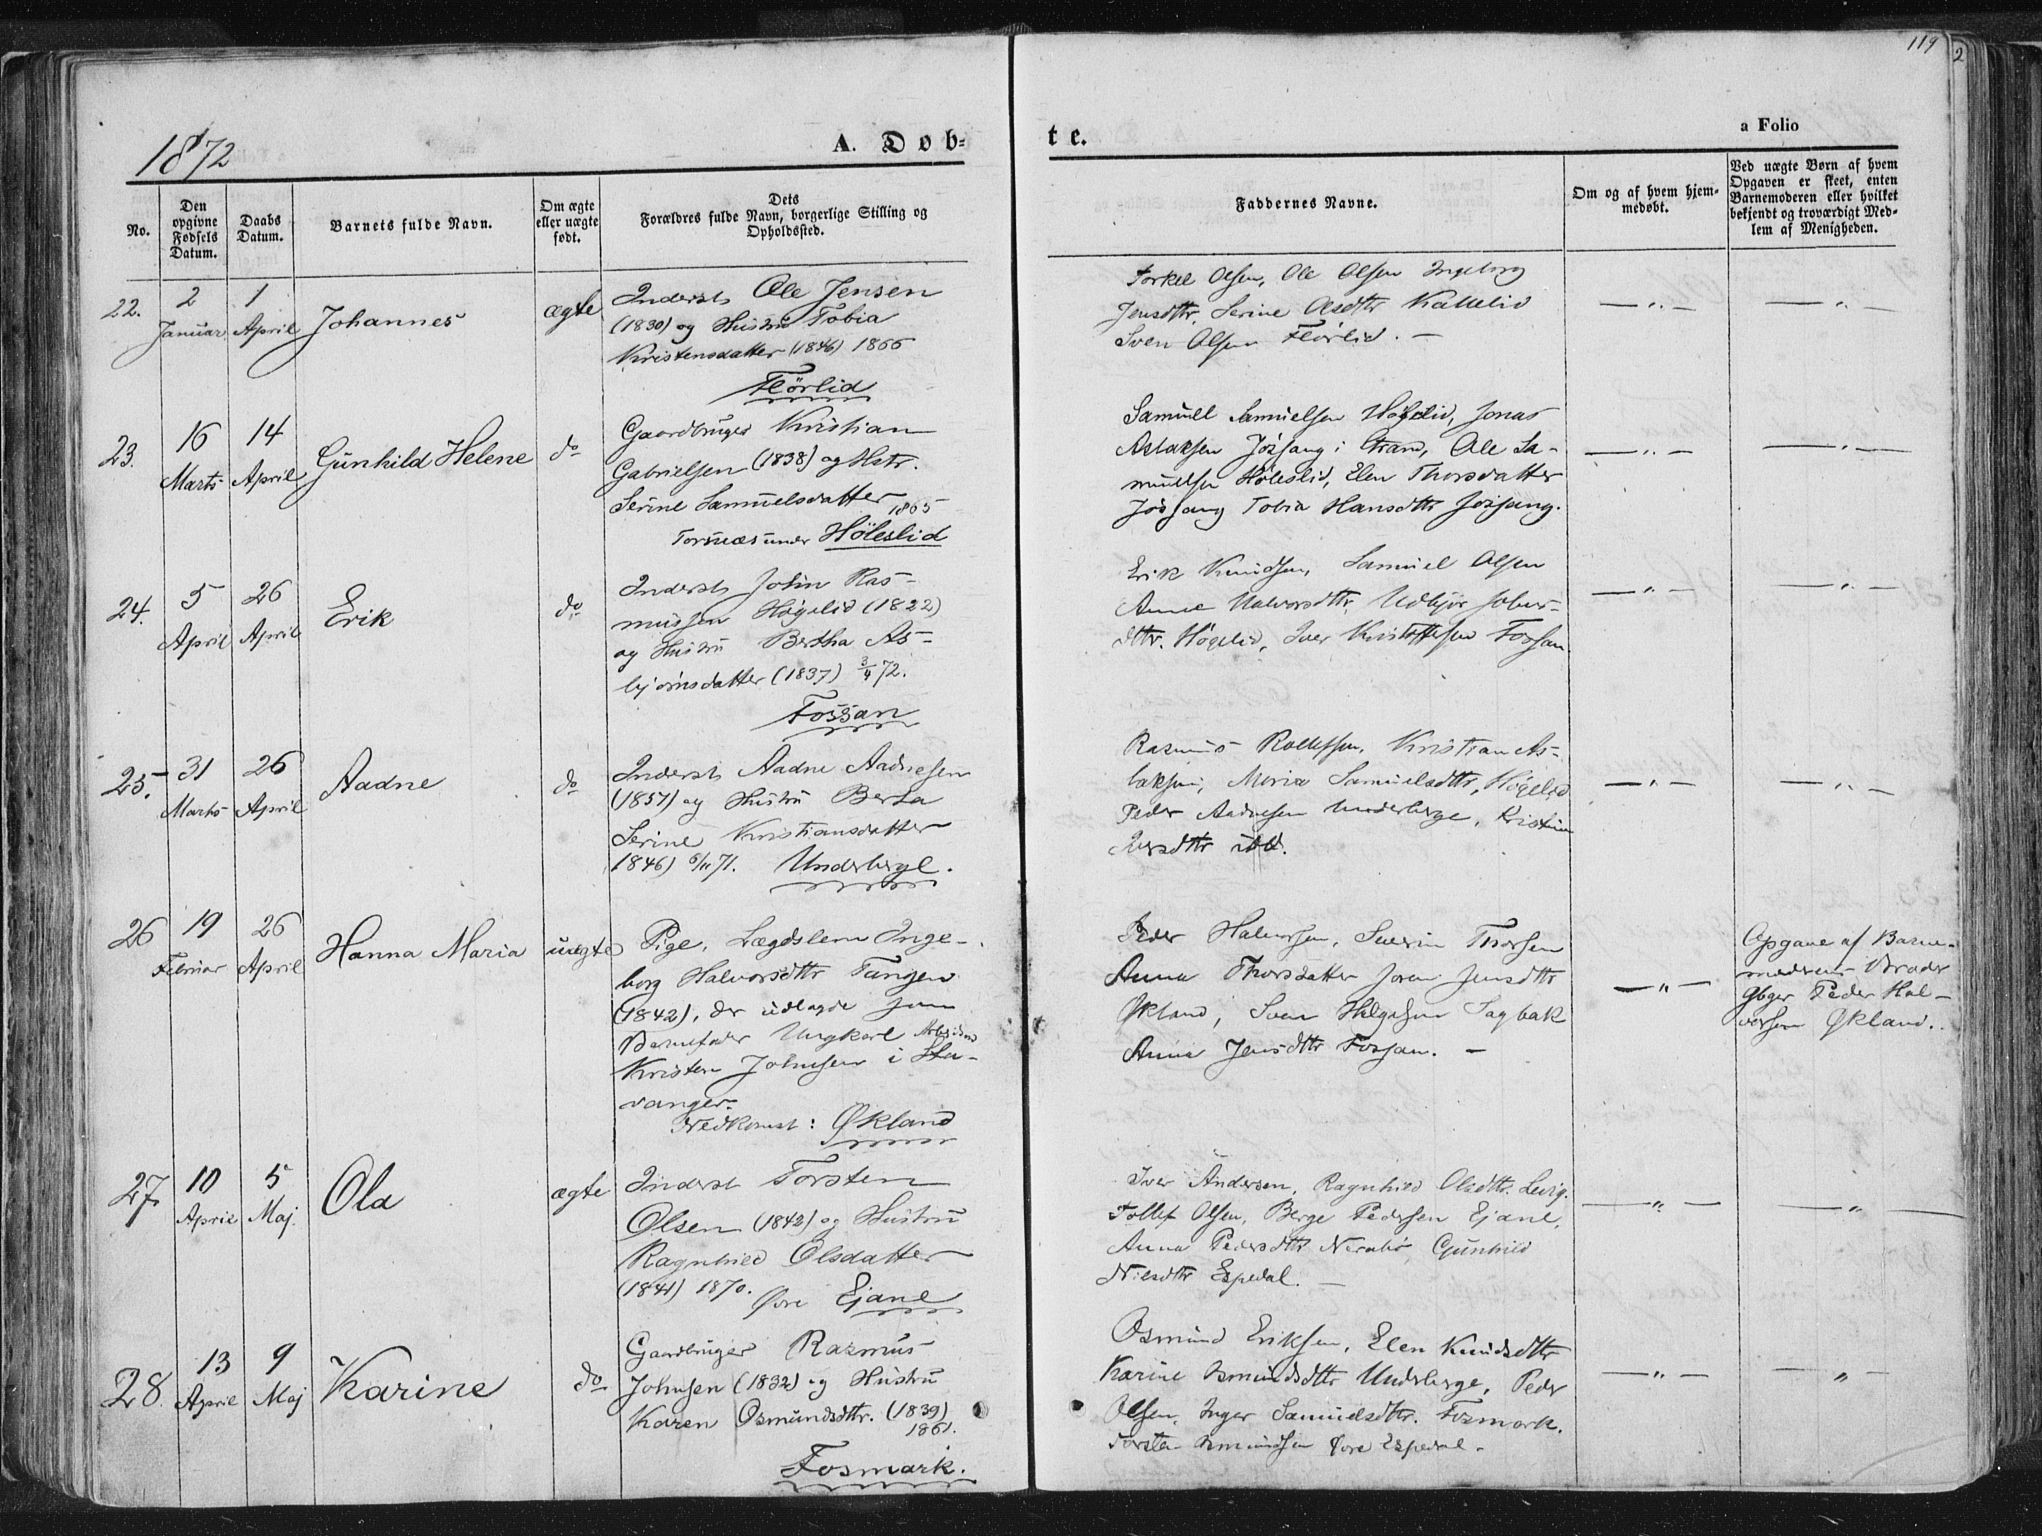 119
2
1872
A. Dob-
te.
a Folio
No.
Den opgivne Fødsels Datum.
Daabs Datum.
Barnets fulde Navn.
Om ægte eller uægte født.
Dets Forældres fulde Navn, borgerlige Stilling og Opholdssted.
Faddernes Navne.
Om og af hvem hjem-
medøbt.
Ved uægte Børn af hvem
Opgaven er skeet, enten
Barnemoderen eller hvilket
bekjendt og troværdigt Med-
lem af Menigheden.
22.
2 Januar
1 April
Johannes
ægte
Inderst Ole Jensen
(1830) og Hustru Tobia
Kristensdatter (1846) 1866
Flörlid
Torkel Olsen, Ole Olsen Ingeborg
Jensdttr, Serine Olsdttr Kallelid
Sven Olsen Flörlid. —
— " —
— " —
23.
16 Marts
14 April
Gunhild Helene
do
Gaardbruger Kristian
Gabrielsen (1838) og Hstr.
Serine Samuelsdatter
1865
Torsnæs under Höleslid
Samuel Samuelsen Höleslid, Jonas
Aslaksen Jösang i Strand, Ole Sa-
muelsen Höleslid, Elen Thorsdatter
Jösang Tobia Hansdttr Jösang.
— " —
— " —
24.
5 April
26 April
Erik
do
Inderst John Ras-
mussen Høgelid (1822)
og Hustru Bertha As-
bjørnsdatter (1837) 3/4 72.
Fossan
Erik Knudsen, Samuel Olsen
Anne Halvorsdttr,
dttr. Høgelid, Iver Kristoffersen Fossan
— " —
— " —
25.
31 Marts
26 April
Aadne
do
Inderst Aadne Aadnesen
(1857) og Hustru Berta
Serine Kristiansdatter
1846) 5/11 71. Underberge.
Rasmus Rollefsen, Kristian As-
laksen, Maria Samuelsdttr, Høgelid
Peder Aadnesen Underberge, Kristine
Iversdttr ibd.
— " —
— " —
26
19 Februar
26 April
Hanna Maria
uægte
Pige, Lægdslem Inge-
borg Halvorsdttr Tangen
(1842), der udlagde som
Barnefader Ungkarl Arbeidsmd
Kristen Johnsen i Sta-
vanger.
Nedkomst: Økland
Peder Halvorsen, Severin Thorsen
Anna Thorsdatter Joren Jensdttr
Økland, Sven Helgesen Sagbak
Anna Jensdttr Fossan. —
— " —
Opgave af Barne-
moderens Broder
Gbger Peder Hal-
vorsen Økland.
27
10 April
5 Maj.
Ola
ægte
Inderst Torsten
Olsen (1842) og Hustru
Ragnhild Olsdatter
(1841) 1870.
Övre Ejane
Iver Andersen, Ragnhild Olsdttr. Levig.
Tollef Olsen, Berge Pedersen Ejane,
Anna Pedersdttr Nerabö Gunhild
Nielsdttr Espedal. —
— " —
— " —
28.
13 April
9 Maj
Karine
do
Gaardbruger Rasmus
Johnsen (1832) og Hustru
Karen Osmundsdttr. (1839)
1861.
Fosmark.
Osmund Eriksen, Elen Knudsdttr
Karine Osmundsdttr Underberge, Peder
Olsen, Inger Samuelsdttr. Fosmark.
Torsten Osmundsen Övre Espedal.
— " —
— " —